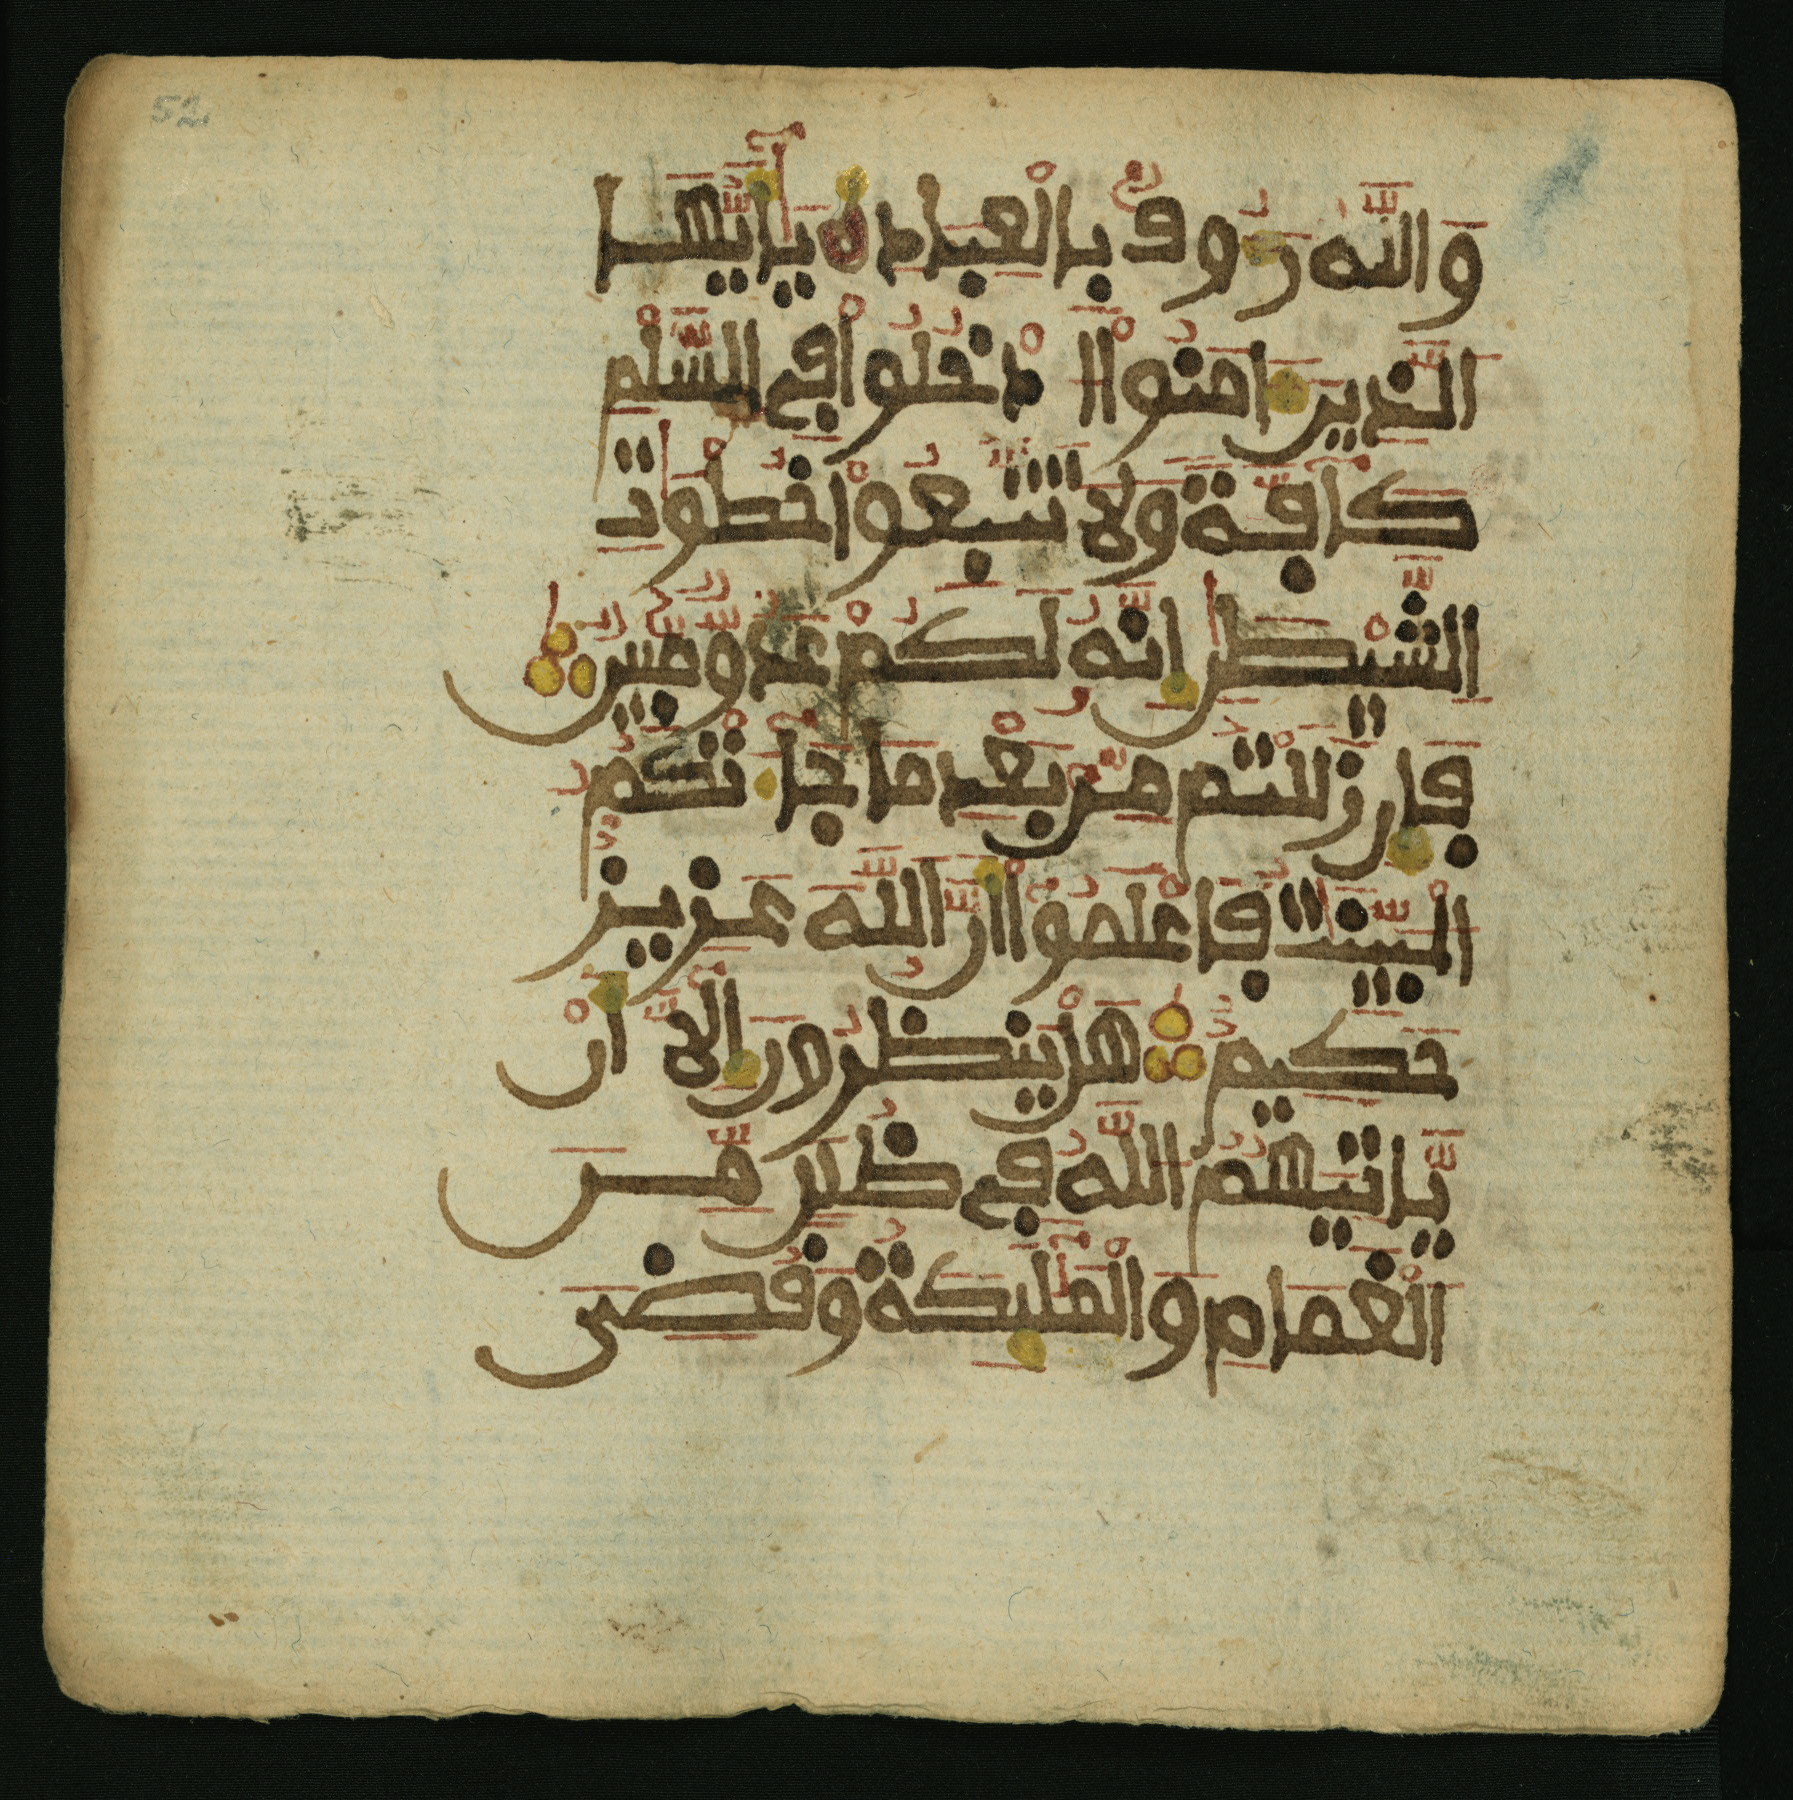 52
والله رءوف بالعباد ۝ يأيها
الذين ءامنوا ادخلوا في السلم
كافة ولا تتبعوا خطوت
الشيطن إنه لكم عدو مبين
فإن زللتم من بعد ما جاءتكم
البينت فاعلموا أن الله عزيز
حكيم هل ينظرون إلا أن
يأتيهم الله في ظلل من
الغمام والملئكة وقضي